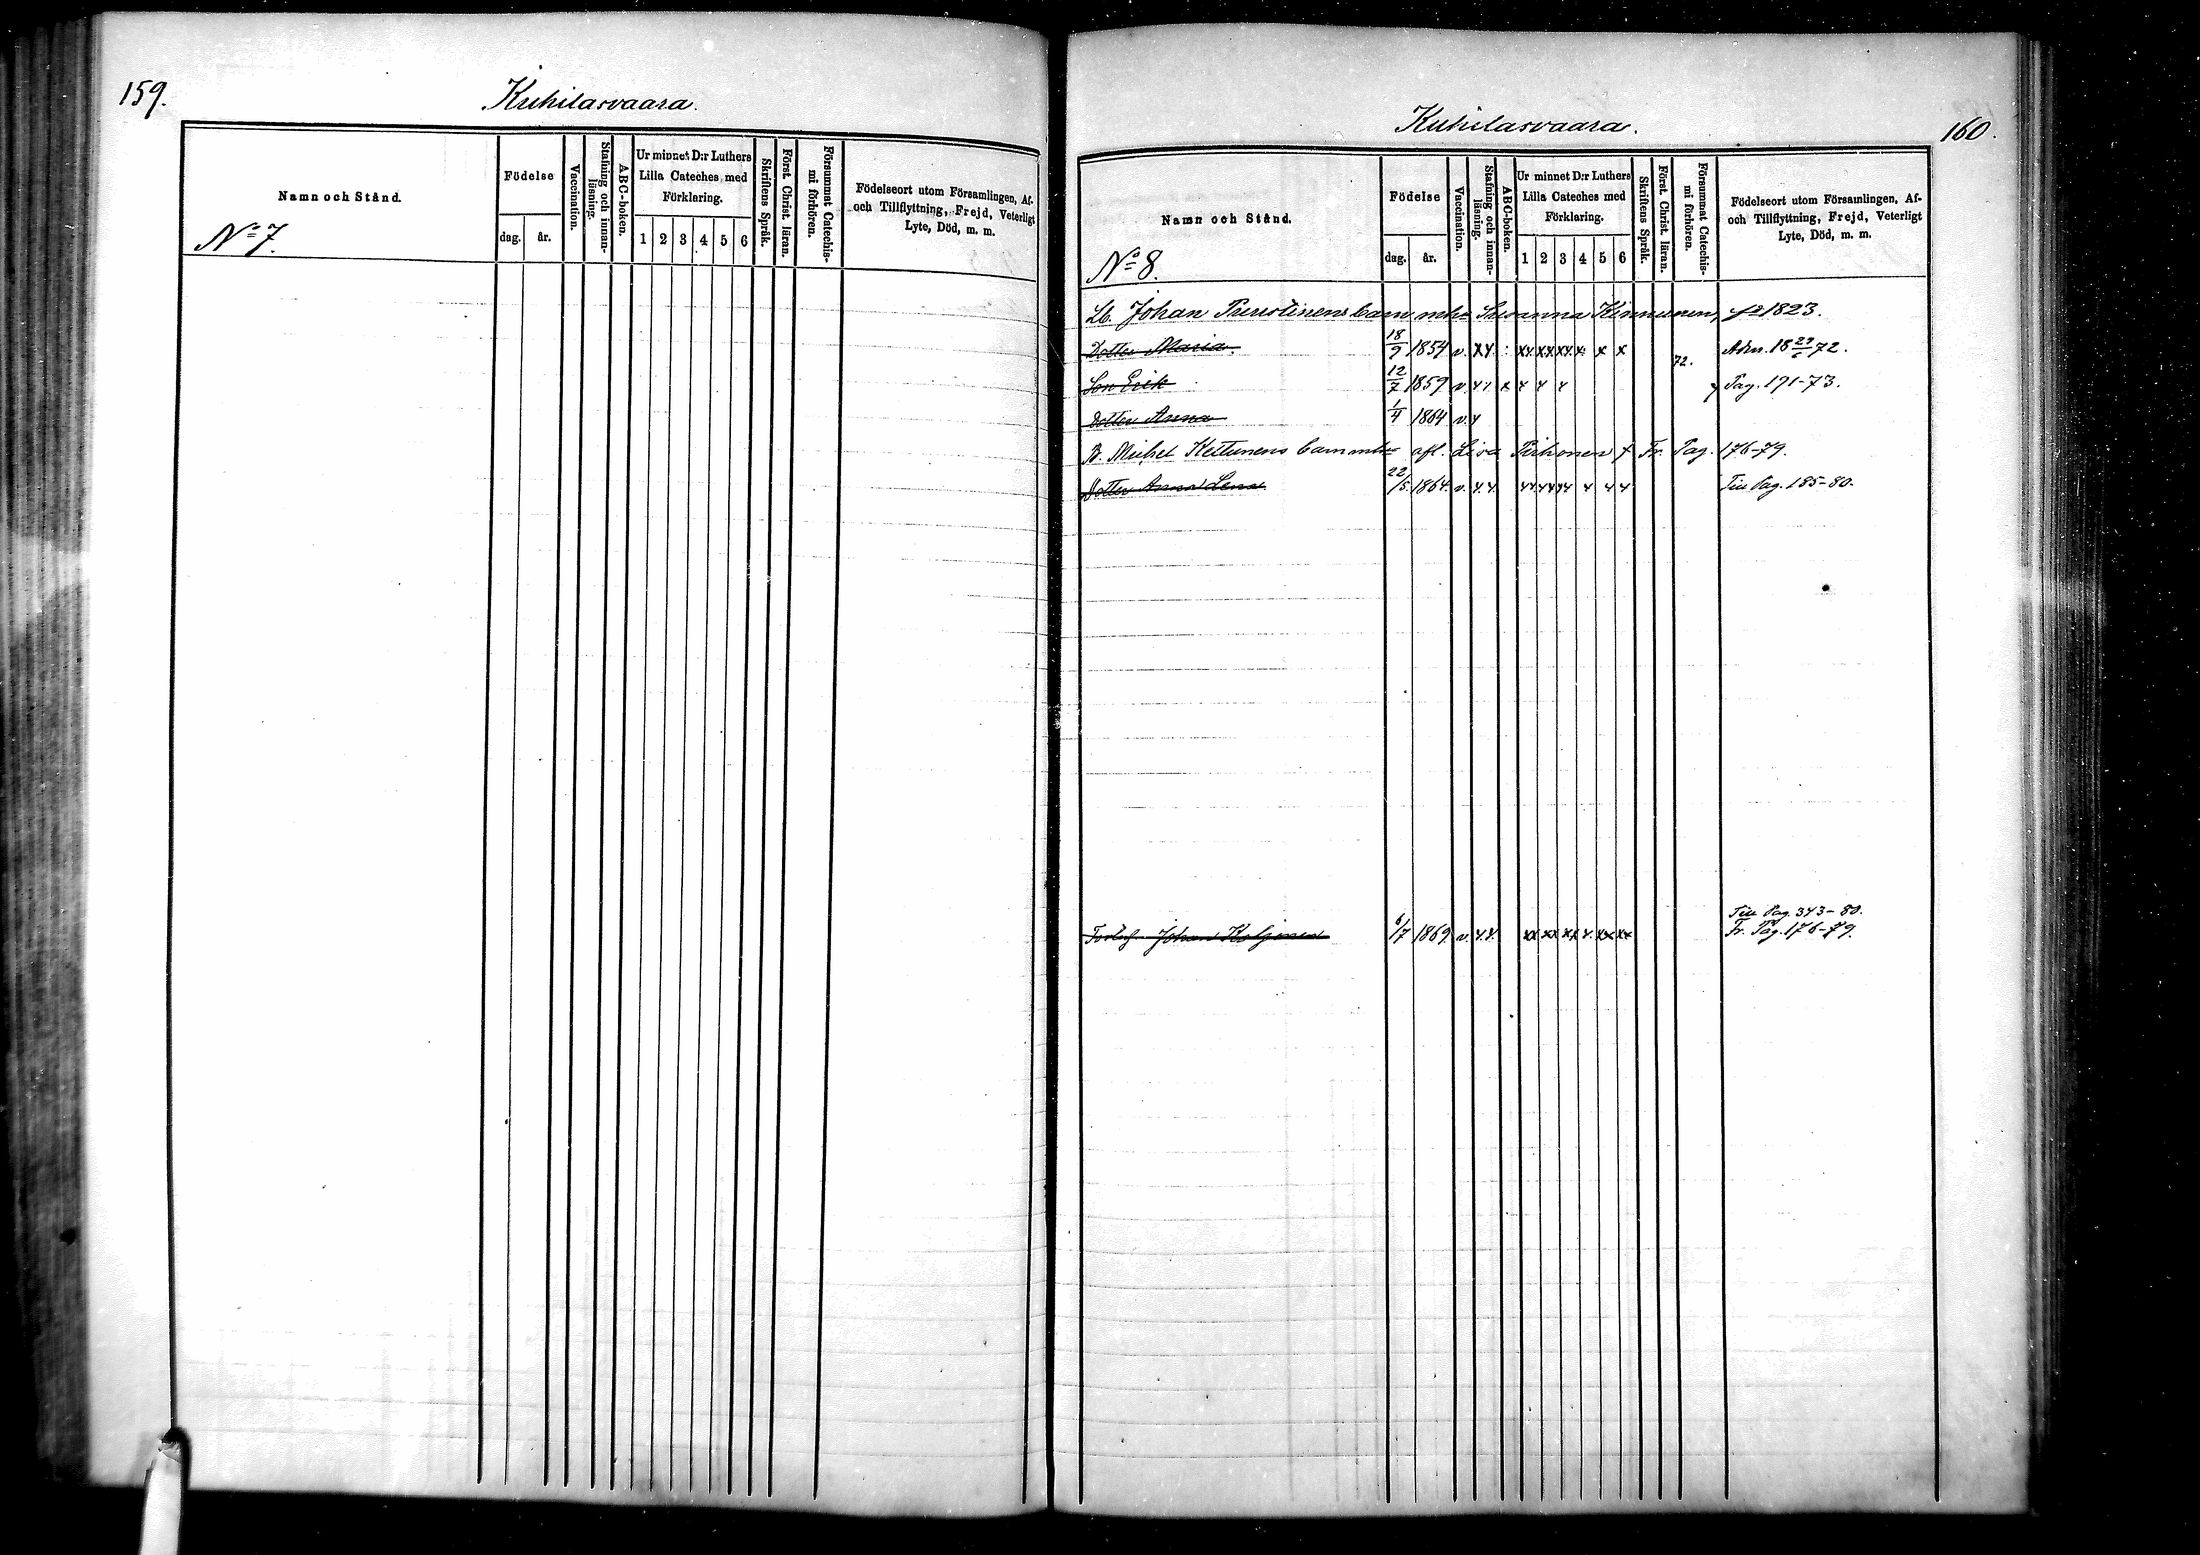 159.
Kuhilasvaara.
Namn och Stånd.
No 7.
Födelse
dag. år.
Vaccination.
Stafning och innanläsning.
ABC-boken.
Ur minnet D:r Luthers Lilla Cateches med Förklaring.
1 2 3 4 5 6
Skriftens Språk.
Först. Christ. läran.
Försummat Catechismi förhören.
Födelseort utom Församlingen, Af- och Tillflyttning, Frejd, Veterligt Lyte, Död, m. m.
Kuhilasvaara.
160.
Namn och Stånd.
No 8.
Födelse
dag. år.
Vaccination.
Stafning och innanläsning.
ABC-boken.
Ur minnet D:r Luthers Lilla Cateches med Förklaring.
1 2 3 4 5 6
Skriftens Språk.
Först. Christ. läran.
Försummat Catechismi förhören.
Födelseort utom Församlingen, Af- och Tillflyttning, Frejd, Veterligt Lyte, Död, m. m.
Lb. Johan barn Susanna Kinnunen, 1823.
Dotter Maria. 18/9 1854 v. 72. 72.
Son Erik 12/7 1859 v. Pag. 191-73.
Dotter Anna 1/4 1864 v.
B. Michel Kettunens barn afl. Pirhonen Fr. Pag. 176-79.
Dotter Anna Lena 22/5 1864 v. Till Pag. 185-80.
Till Pag. 343-80.
Johan 6/7 1869 v. Fr. Pag. 176-79.